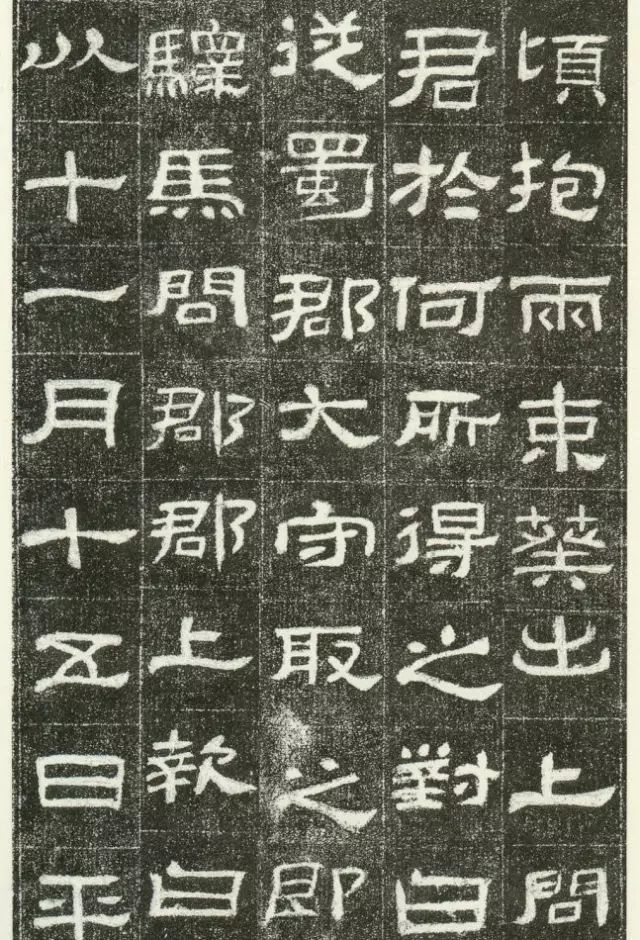 頃抱兩束葵出上問
君於何所得之對曰
從蜀郡大守取之即
驛馬問郡郡上報曰
以十一月十五日平